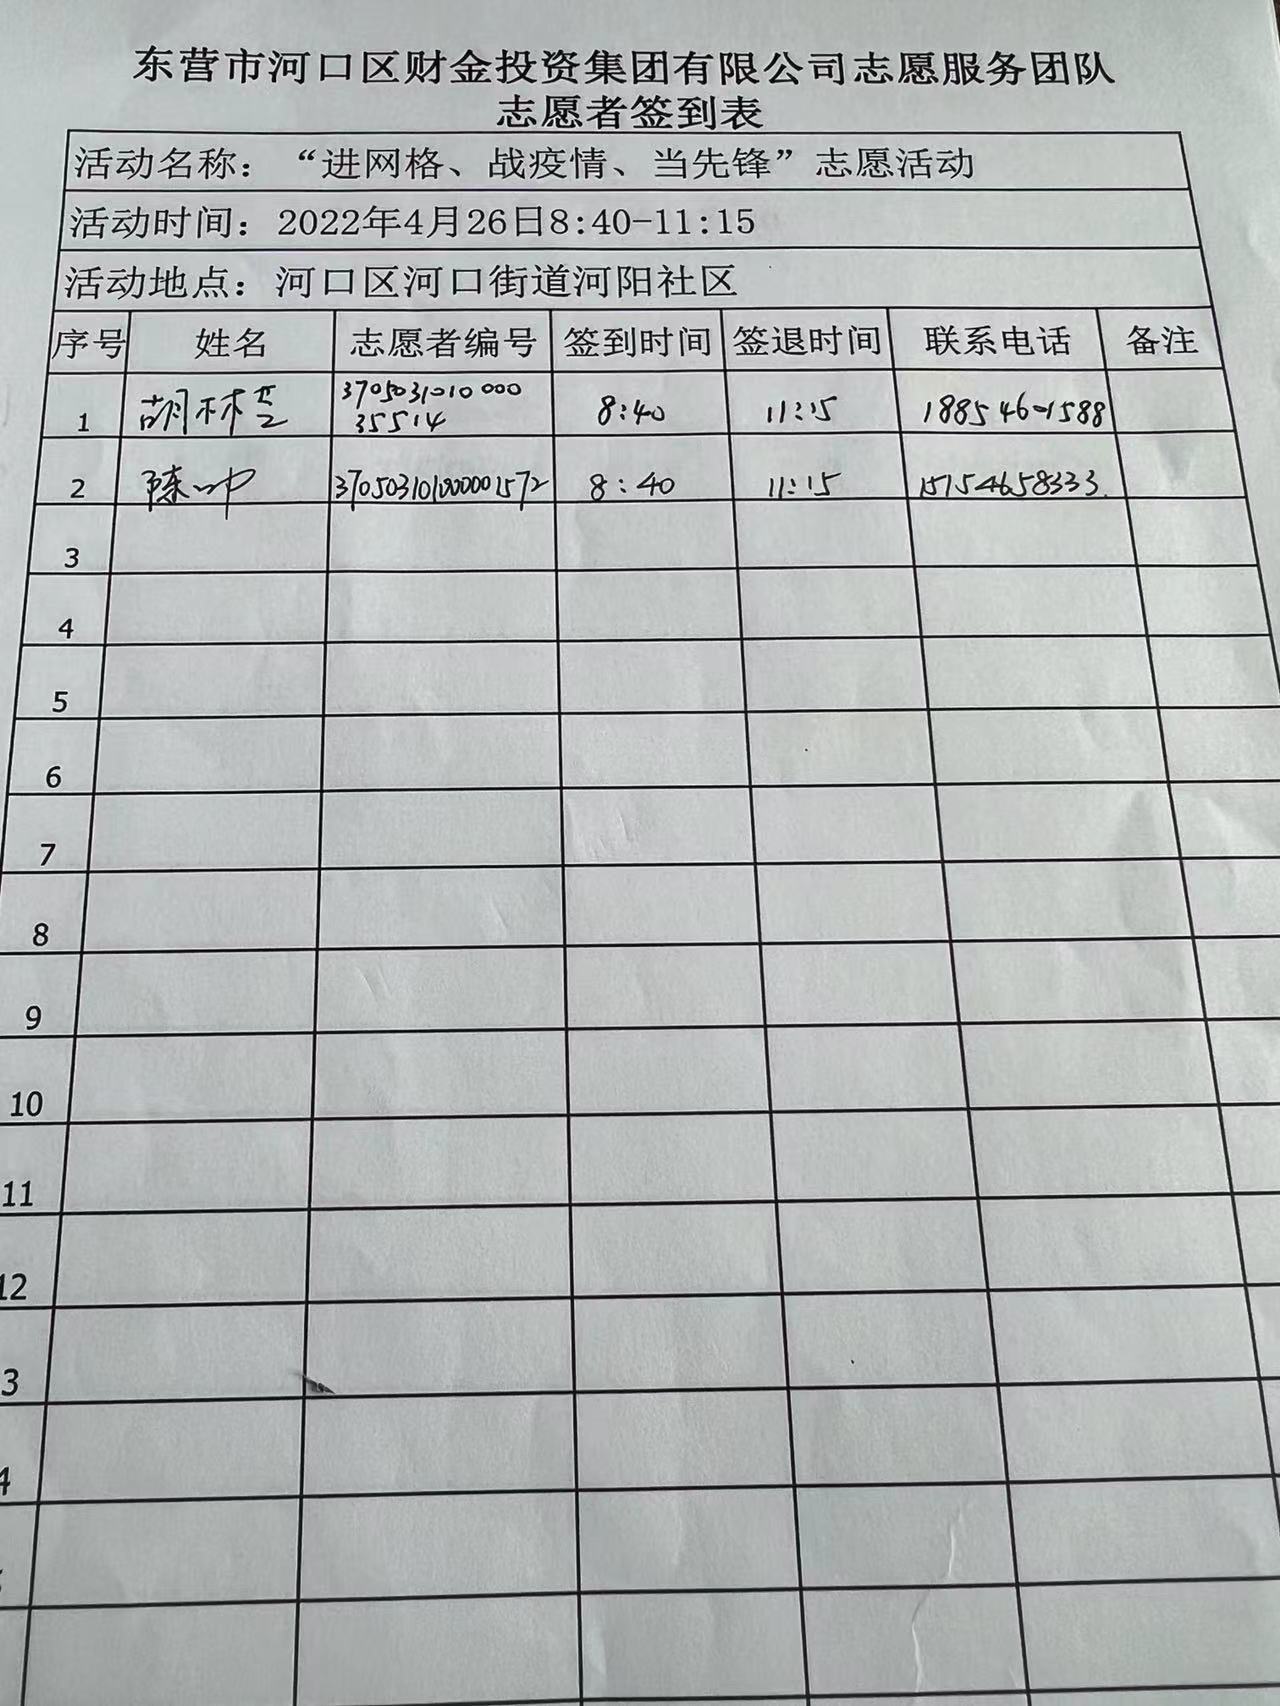 东营市河口区财金投资集团有限公司志愿服务团队
志愿者签到表
活动名称：“进网格、战疫情、当先锋”志愿活动
活动时间：2022年4月26日8:40-11:15
活动地点：河口区河口街道河阳社区
序号 姓名 志愿者编号 签到时间 签退时间 联系电话 备注
1 胡林 3705031010000 35514 8:40 11:15 18854621588
2 陈 8:40 11:15 15154658333
3
4
5
6
7
8
9
10
11
12
3
4